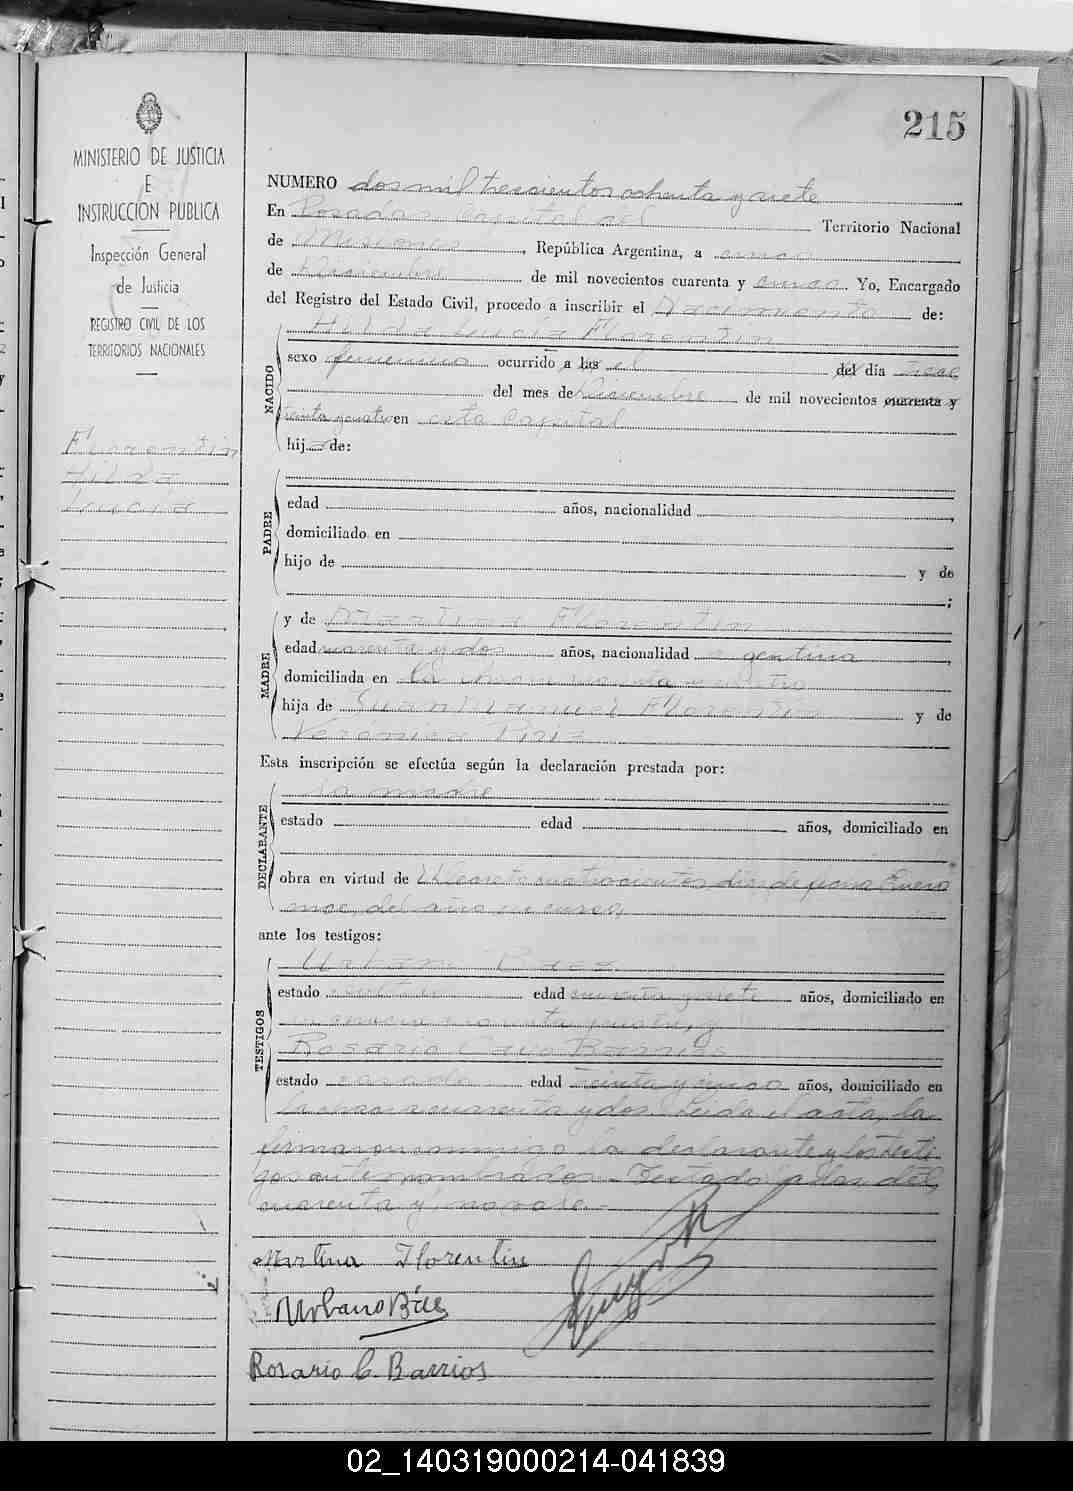 215
MINISTERIO DE JUSTICIA
E
INSTRUCCION PUBLICA
Inspección General
de Justicia
REGISTRO CIVIL DE LOS
TERRITORIOS NACIONALES
Florentin
Hilda
Lucia
NUMERO dos mil trescientos ochenta y siete
En Posadas Capital del Territorio Nacional
de Misiones, República Argentina, a cinco
de Diciembre de mil novecientos cuarenta y cinco Yo, Encargado
del Registro del Estado Civil, procedo a inscribir el Nacimiento de:
NACIDO
Hilda Lucia Florentin
sexo femenino ocurrido a las el del día trece
del mes de Diciembre de mil novecientos cuarenta y
treinta y cuatro en esta Capital
hija de:
PADRE
edad años, nacionalidad
domiciliado en
hijo de y de
;
MADRE
y de Martina Florentin
edad cuarenta y dos años, nacionalidad argentina
domiciliada en la chacra cuarenta y cuatro
hija de Juan Manuel Florentin y de
Verónica
Esta inscripción se efectúa según la declaración prestada por:
DECLARANTE
la madre
estado edad años, domiciliado en
obra en virtud de Decreto cuatrocientos diez de fecha Enero
del año en curso,
ante los testigos:
TESTIGOS
Urbano Baez
estado soltero edad cuarenta y siete años, domiciliado en
la chacra cuarenta y cuatro, y
Rosario Caro Barrios
estado casado edad treinta y cinco años, domiciliado en
la chacra cuarenta y dos. Leida el acta, la
firmaron conmigo la declarante y los testi-
gos antes nombrados. Testado: a las, del,
cuarenta y, no vale.
Martina Florentin
Urbano Báez
Rosario C. Barrios
02_140319000214-041839